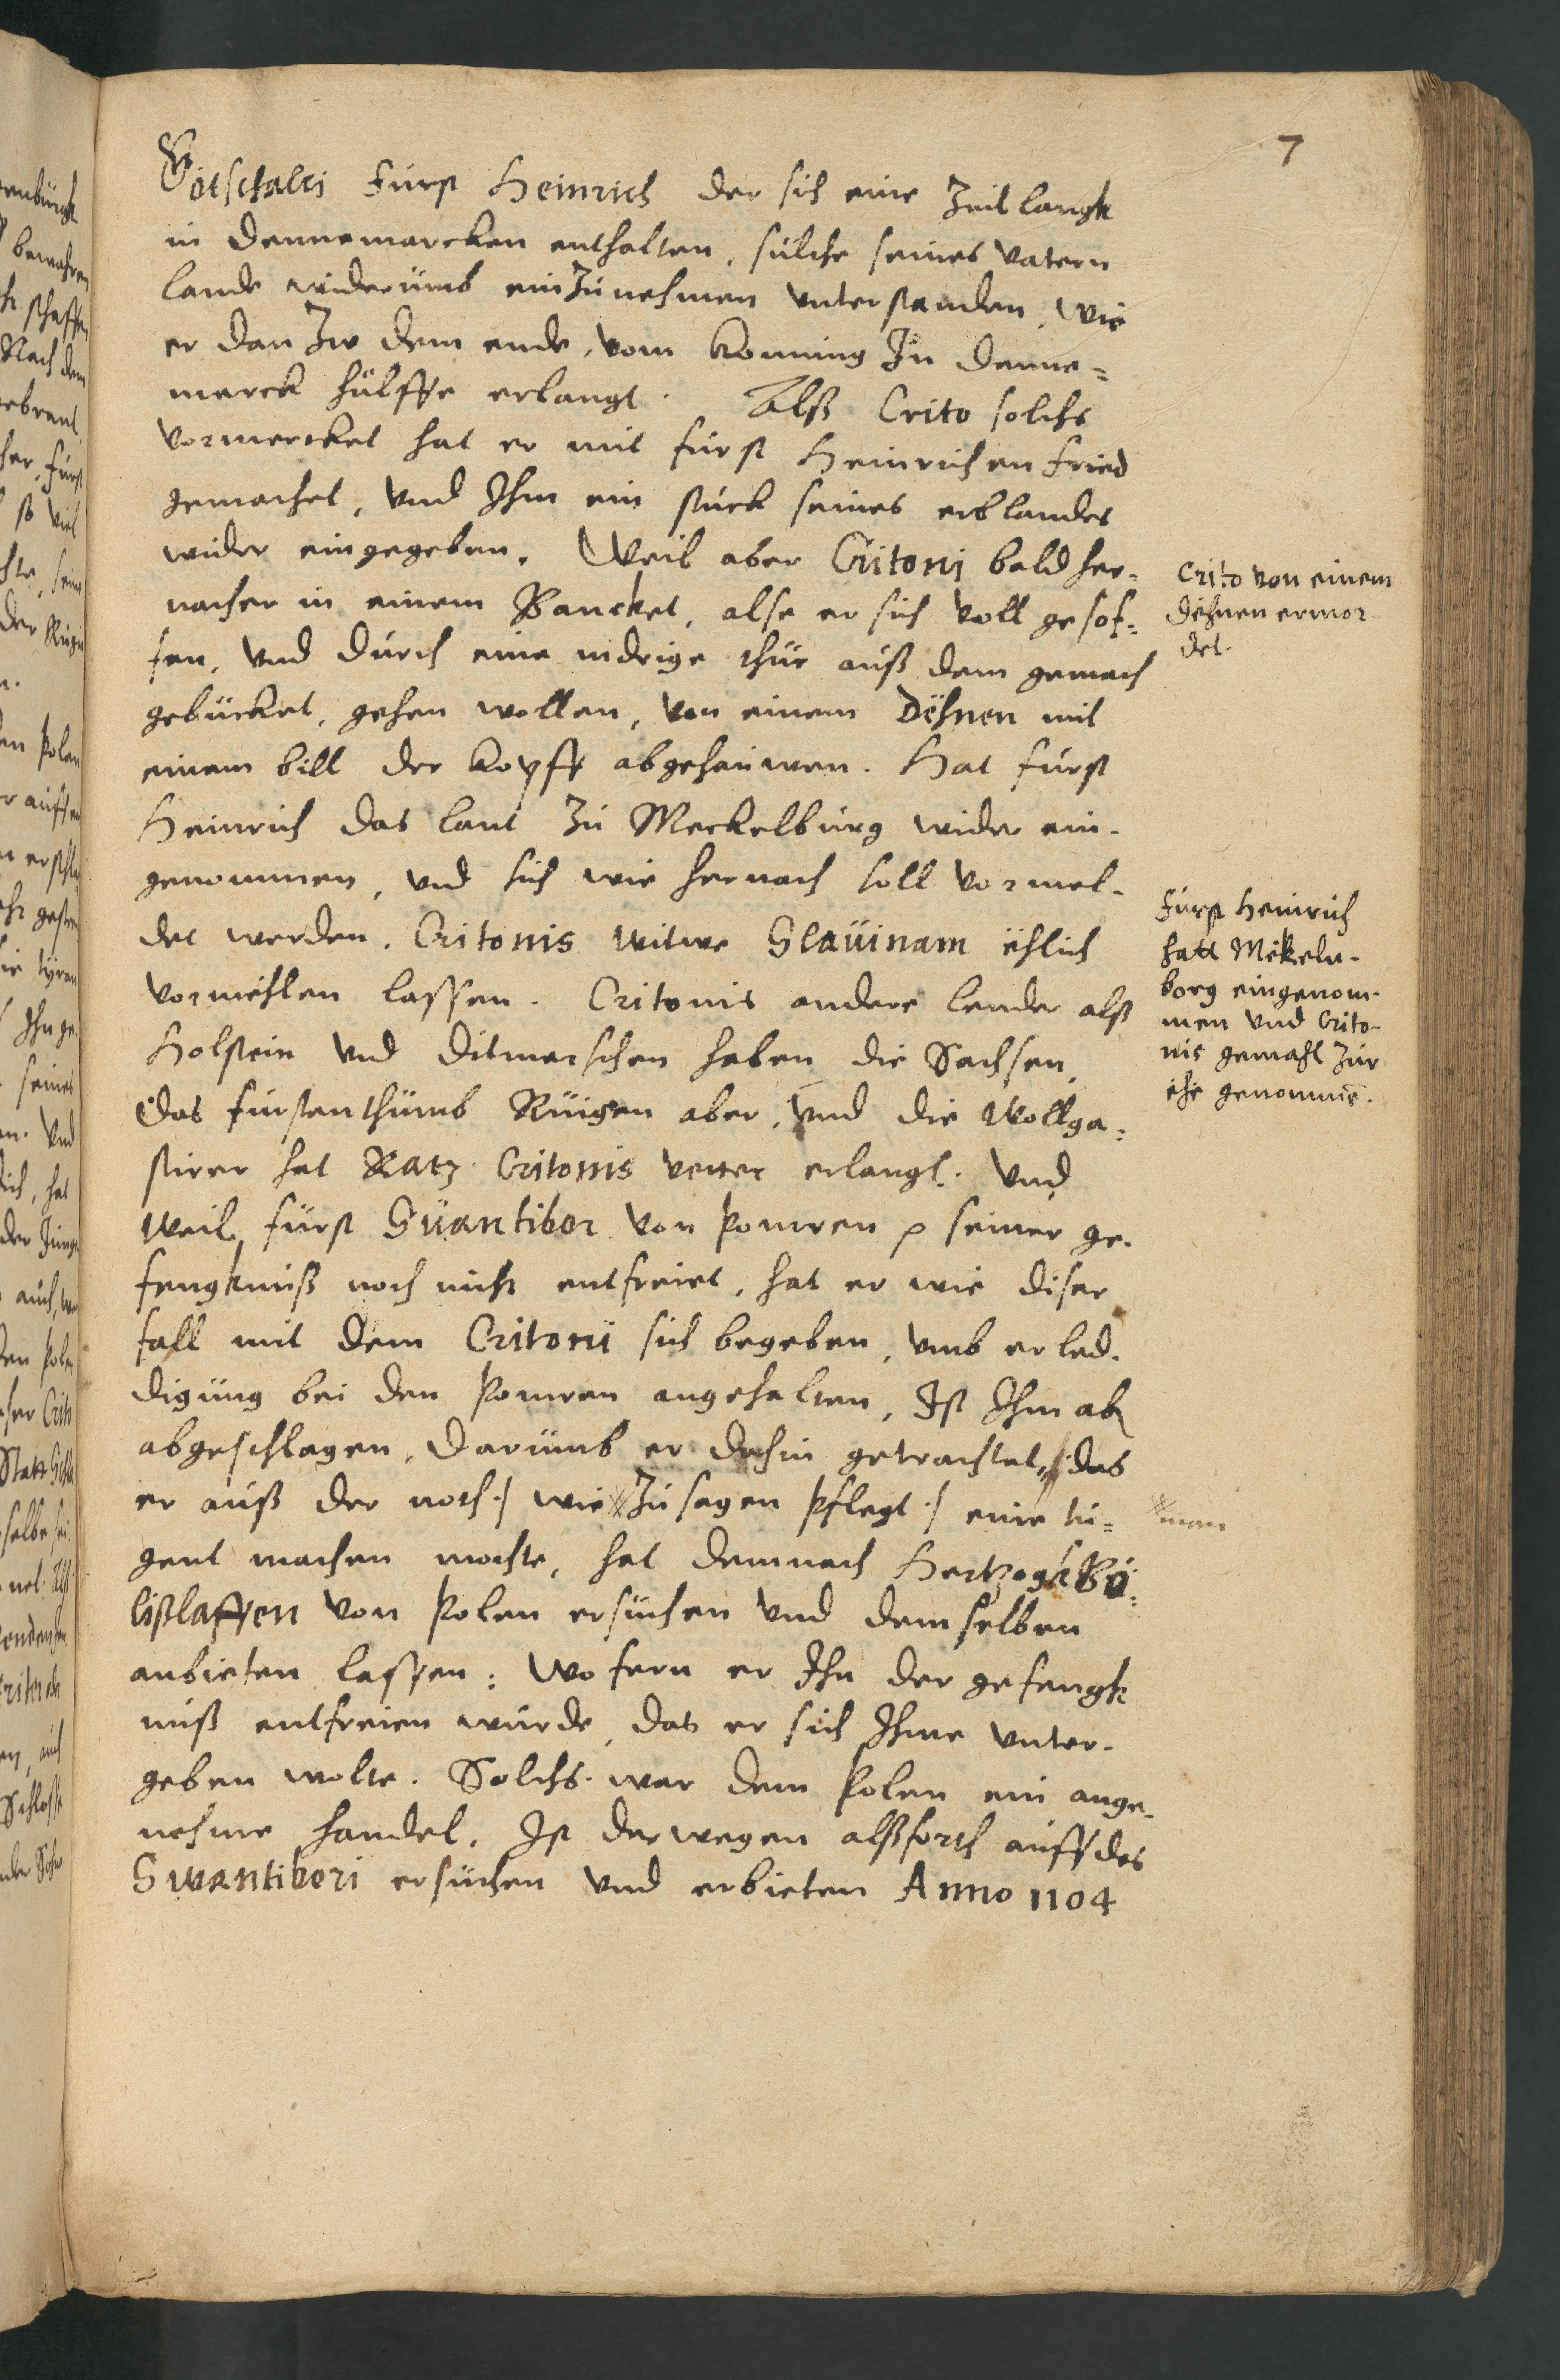 7
Götschalci Fürst Heinrich der sich eine Zeit langk
in Dennemarcken enthalten, sülche seines Vatern
lande widerümb einZünehmen vnterstanden, wie
er dan Zw dem ende, vom Konning In Denne=
marck hülffe erlangt. Alß Crito solchs
vormercket hat er mit fürst Heinrichen fried
gemachet, vnd Ihm ein stück seines erblandes
wider eingegeben. Weil aber Critoni bald her=
nacher in einem Bancket, alse er sich voll gesof=
fen, vnd dürch eine nidrige thür auß dem gemach
gebücket, gehen wollen, von einem Dëhnen mit
einem bill der kopff abgehaüwen. Hat fürst
Heinrich das lant Zü Meckelbürg wider ein-
genommen, vnd sich wie hernach soll vormel-
det werden, Critonis witwe Slaüinam ëhlich
vormëhlen lassen. Critonis andere lender alß
Holstein vnd Ditmarschen haben die Sachsen,
Das fürstenthümb Rüigen aber, vnd die Wollga=
stirer hat Ratz Critonis vetter erlangt. Vnd
Weil fürst Süantibor von Pomren seiner ge-
fengkniß noch nicht entfreiet, hat er wie diser
fall mit dem Critonï sich begeben, vmb erled-
digüng bei den Pomren angehalten, Ist Ihm ab
abgeschlagen, Darümb er dahin getrachtet, das
er auß der noth :/ wie Zü sagen pflegt :/ eine tü=
gent machen mochte, hat demnach Hertzogk Bo=
lißlaffen von Polen ersüchen vnd demselben
anbieten lassen: Wofern er Ihn der gefengk
nüß entfreien würde, das er sich Ihme vnter-
geben wolte. Solchs war dem Polen ein ange-
nehme handel, Ist derwegen alßforth auff des
Swantibori ersüchen vnd erbieten Anno 1104
Crito von einem
Dëhnen ermor
det.
Fürst Heinrich
hatt Mekeln-
borg eingenom-
men vnd Crito-
nis gemahl Zür
ehe genommē.
man